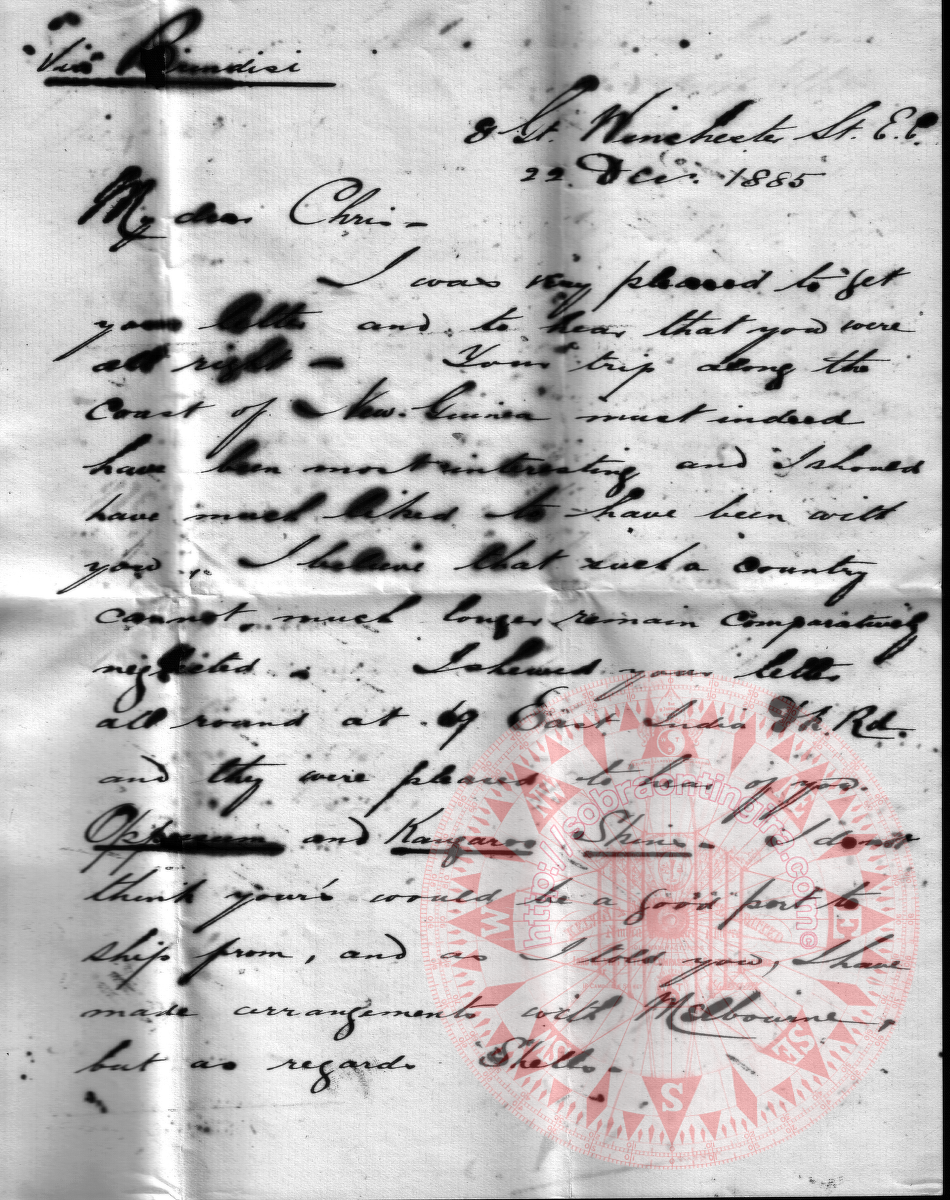 Via Brindisi
8 Gt. Winchester St. E.C.
22 Dec. 1885
My dear Chris -
I was very pleased to get
your letter and to hear that you were
all right - Your trip along the
Coast of New Guinea must indeed
have been most interesting and I should
have much liked to have been with
you. I believe that such a country
cannot much longer remain comparatively
neglected. I shewed your letter
all round at 69 East India Rd.
and they were pleased to hear of you.
Oppossum and Kangaroo Skins. I do not
think your's would be a good port to
ship from, and as I told you, I have
made arrangements with Melbourne,
but as regards Shells.
http://cobradontingra.com©
W
E
S
SE